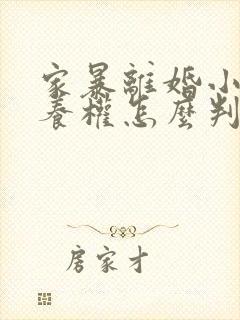 家暴離婚小
養權怎麼判
房家才